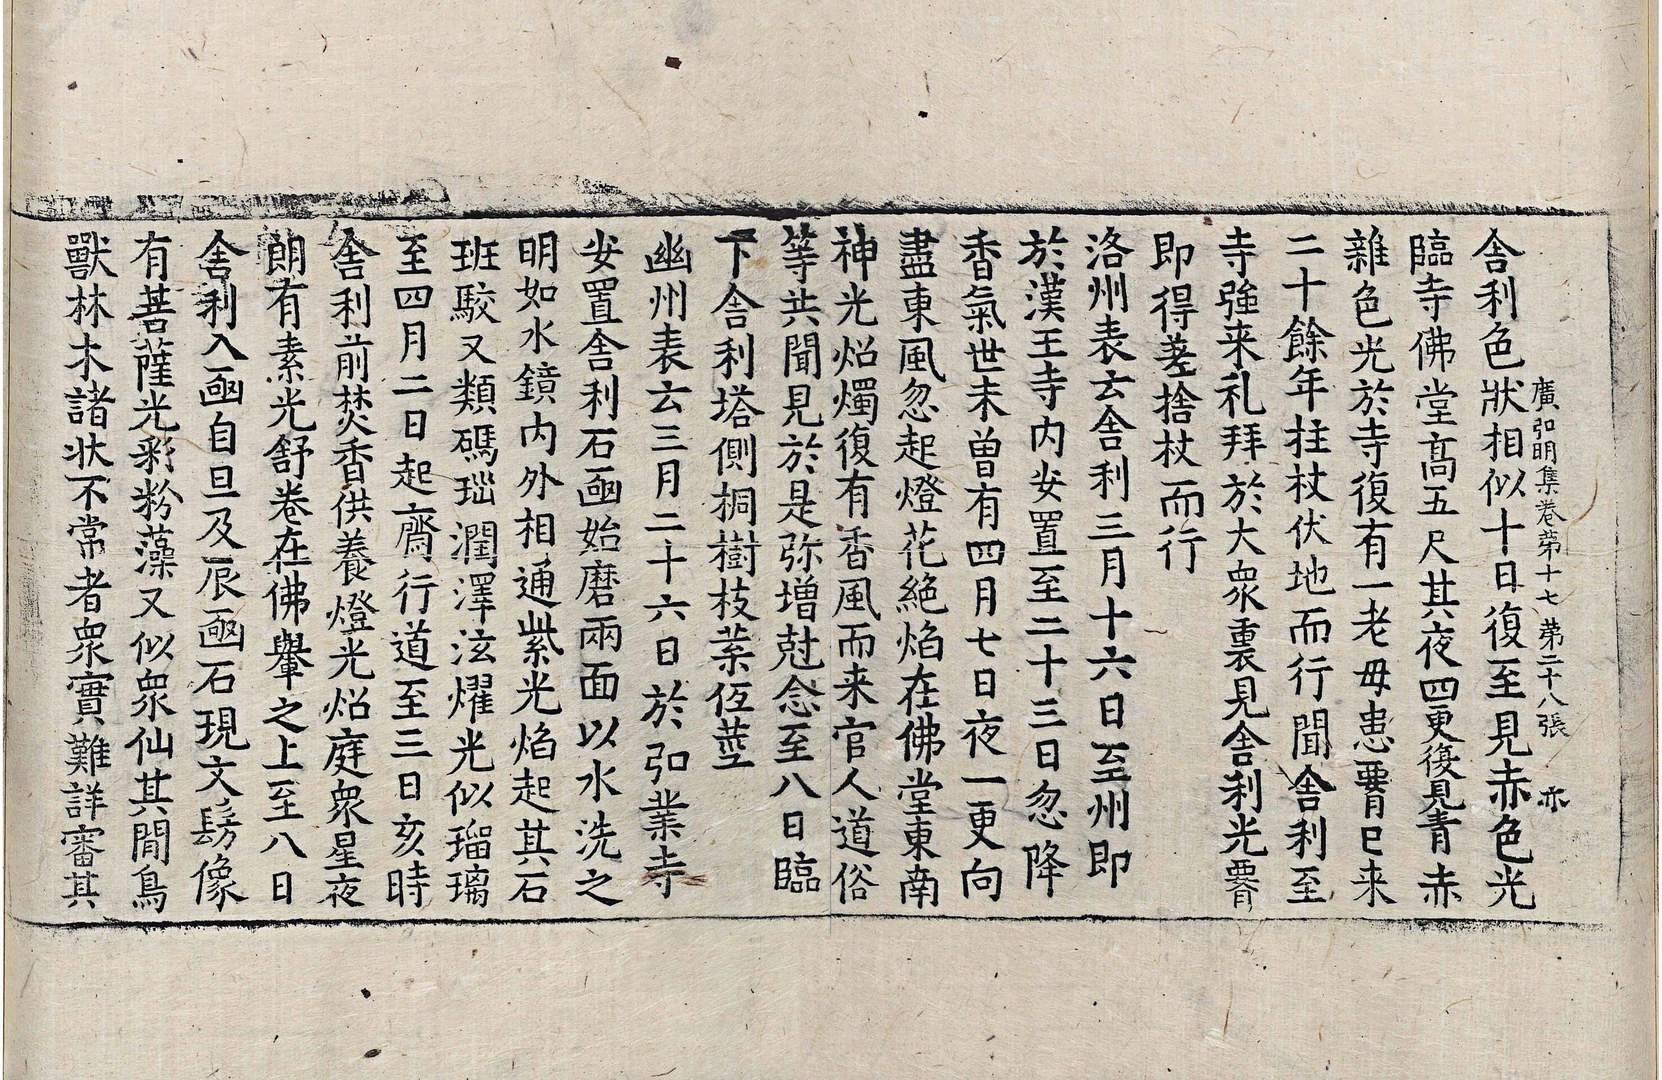 廣弘明集卷第十七 第二十八張 亦
舎利色狀相似十日復至見赤色光
臨寺佛堂髙五尺其夜四更復見青赤
雜色光於寺復有一老毋患𦝫已来
二十餘年拄杖伏地而行聞舎利至
寺強来礼拜於大衆裏見舎利光𦝫
即得差捨杖而行
洛州表云舎利三月十六日至州即
於漢王寺内安置至二十三日忽降
香氣世未曽有四月七日夜一更向
盡東風忽起燈花絶焰在佛堂東南
神光炤燭復有香風而来官人道俗
等共聞見於是弥增尅念至八日臨
下舎利塔側桐樹枝葉低莖
幽州表云三月二十六日於弘業寺
安置舎利石凾始磨兩面以水洗之
明如水鏡内外相通紫光焰起其石
班駮又類碼瑙潤澤泫燿光似瑠璃
至四月二日起齋行道至三日亥時
舎利前焚香供養燈光炤庭衆星夜
朗有素光舒卷在佛轝之上至八日
舎利入凾自旦及辰凾石現文髣像
有菩薩光彩粉藻又似衆仙其間鳥
獸林木諸状不常者衆實難詳審其